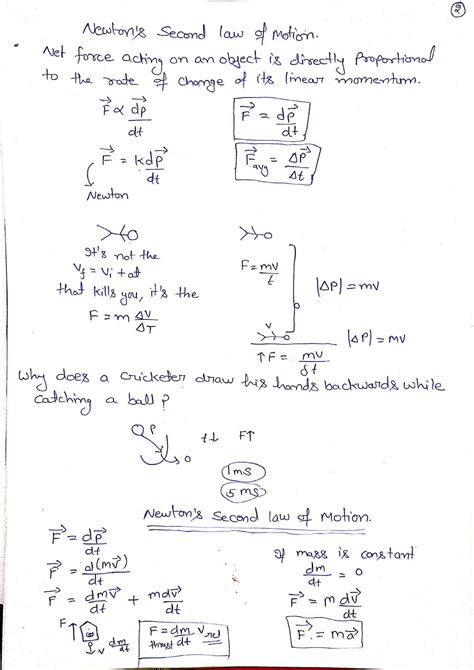 ②
Newton's Second law of Motion.
Net force acting on an object is directly proportional
to the rate of change of its linear momentum.
F⃗ ∝ dp⃗/dt
F⃗ = dp⃗/dt
F⃗ = kdp⃗/dt
F⃗avg = ΔP⃗/Δt
Newton
It's not the
Vf = Vi + at
that kills you, it's the
F = m ΔV/ΔT
F = mv/t
|ΔP| = mv
v
|ΔP| = mv
↑F = mv/δt
Why does a cricketer draw his hands backwards while
catching a ball?
P
0
t↓ F↑
1ms
5 ms
Newton's Second law of Motion.
F⃗ = dp⃗/dt
F⃗ = d(mv⃗)/dt
F⃗ = dmv⃗/dt + mdv⃗/dt
F↑
v
dm/dt
F thrust = dm/dt Vrel
If mass is constant
dm/dt = 0
F⃗ = m dv⃗/dt
F⃗ = ma⃗